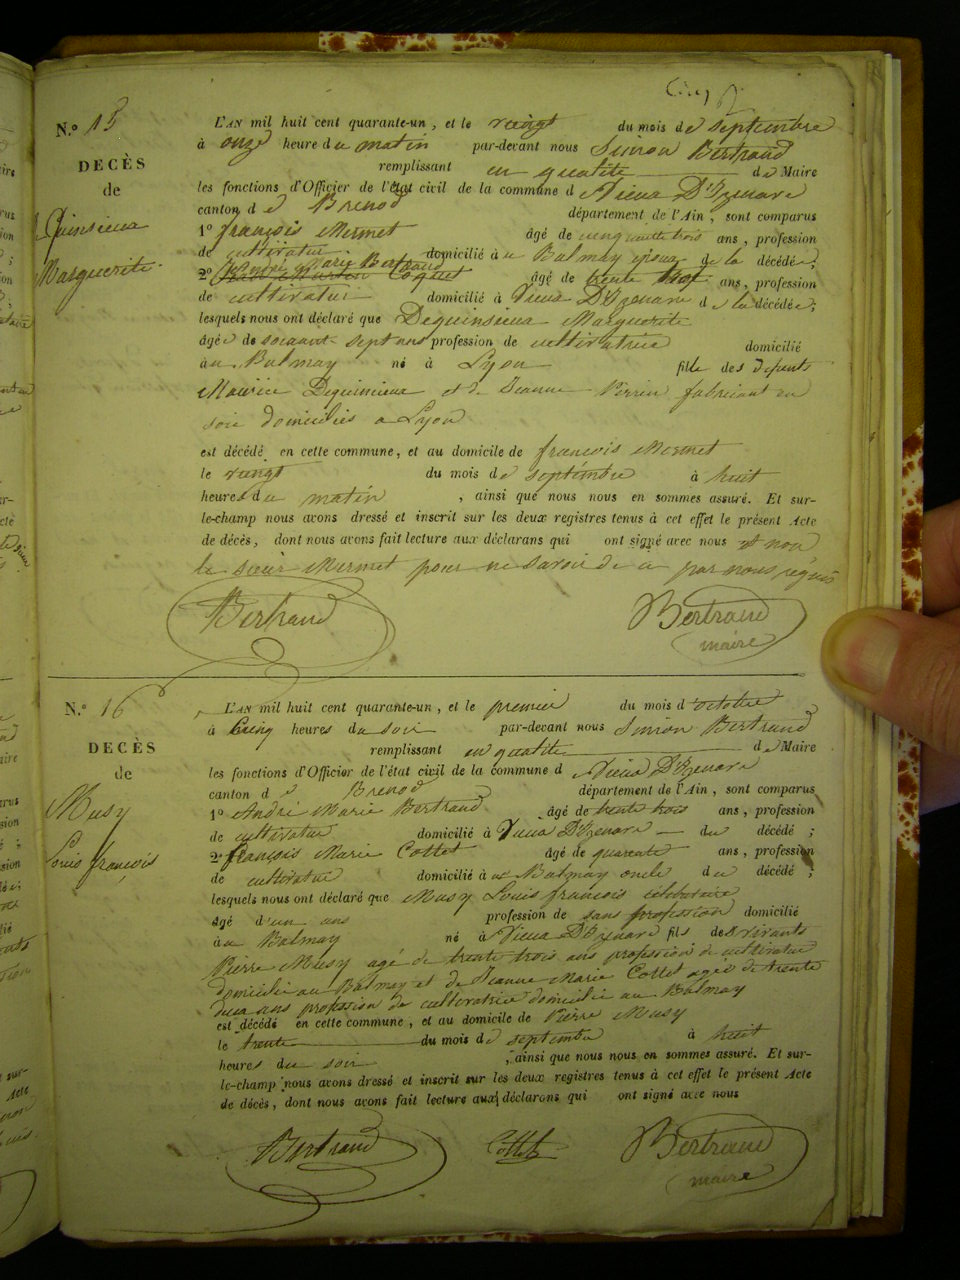 Cinq
N.º 15
DECÈS
de
Quinsieux
Marguerite
L'AN mil huit cent quarante-un, et le vingt du mois de septembre
à onze heure du matin par-devant nous Simeon Bertrand
remplissant en qualité de Maire
les fonctions d'Officier de l'état civil de la commune d Vieux D'Izenave
canton de Brenod département de l'Ain, sont comparus
1º françois Mermet âgé de cinquante trois ans, profession
de cultivateur domicilié à u Balmay de la décédée;
2º André Marie Bertrand âgé de trente trois ans, profession
de cultivateur domicilié à Vieux D'Izenave d la décédée;
lesquels nous ont déclaré que Dequinsieux Marguerite
âgée de soixante sept ans profession de cultivatrice domicilié
au Balmay né à Lyon fille des défunts
Maurice Dequinsieux et de Jeanne Perrin fabricant en
soie domiciliés a Lyon
est décédé en cette commune, et au domicile de françois Mermet
le vingt du mois de septembre à huit
heures du matin, ainsi que nous nous en sommes assuré. Et sur-
le-champ nous avons dressé et inscrit sur les deux registres tenus à cet effet le présent Acte
de décès, dont nous avons fait lecture aux déclarans qui ont signé avec nous et non
le sieur Mermet pour ne savoir de ce par nous requis
Bertrand Bertrand
maire
N.º 16
DECÈS
de
Musy
Louis françois
L'AN mil huit cent quarante-un, et le premier du mois d'octobre
à Cinq heures du soir par-devant nous Simeon Bertrand
remplissant en qualité de Maire
les fonctions d'Officier de l'état civil de la commune d Vieux D'Izenave
canton de Brenod département de l'Ain, sont comparus
1º André Marie Bertrand âgé de trente trois ans, profession
de cultivateur domicilié à Vieux D'Izenave du décédé;
2º françois Marie Cottet âgé de quarente ans, profession
de cultivateur domicilié à u Balmay oncle du décédé;
lesquels nous ont déclaré que Musy Louis françois célibataire
âgé d'un ans profession de sans profession domicilié
au Balmay né à Vieux D'Izenave fils des vivants
Pierre Musy agé de trente trois ans profession de cultivateur
domicilié au Balmay et de Jeanne Marie Cottet agée de trente
deux ans profession de cultivatrice domicilié au Balmay
est décédé en cette commune, et au domicile de Pierre Musy
le trente du mois de septembre à huit
heures du soir, ainsi que nous nous en sommes assuré. Et sur-
le-champ nous avons dressé et inscrit sur les deux registres tenus à cet effet le présent Acte
de décès, dont nous avons fait lecture aux déclarans qui ont signé avec nous
Bertrand Cottet Bertrand
maire